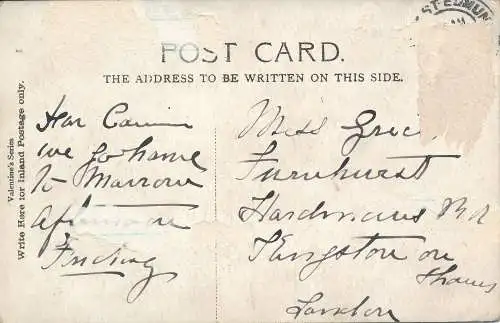 ST EDMUN
POST CARD.
THE ADDRESS TO BE WRITTEN ON THIS SIDE.
Valentine's Series
Write Here for Inland Postage only.
Dear
we go home
to Marrow
afternoon
Miss Grice
Fernhurst
Hardmans Rd
Kingston on
Thames
London